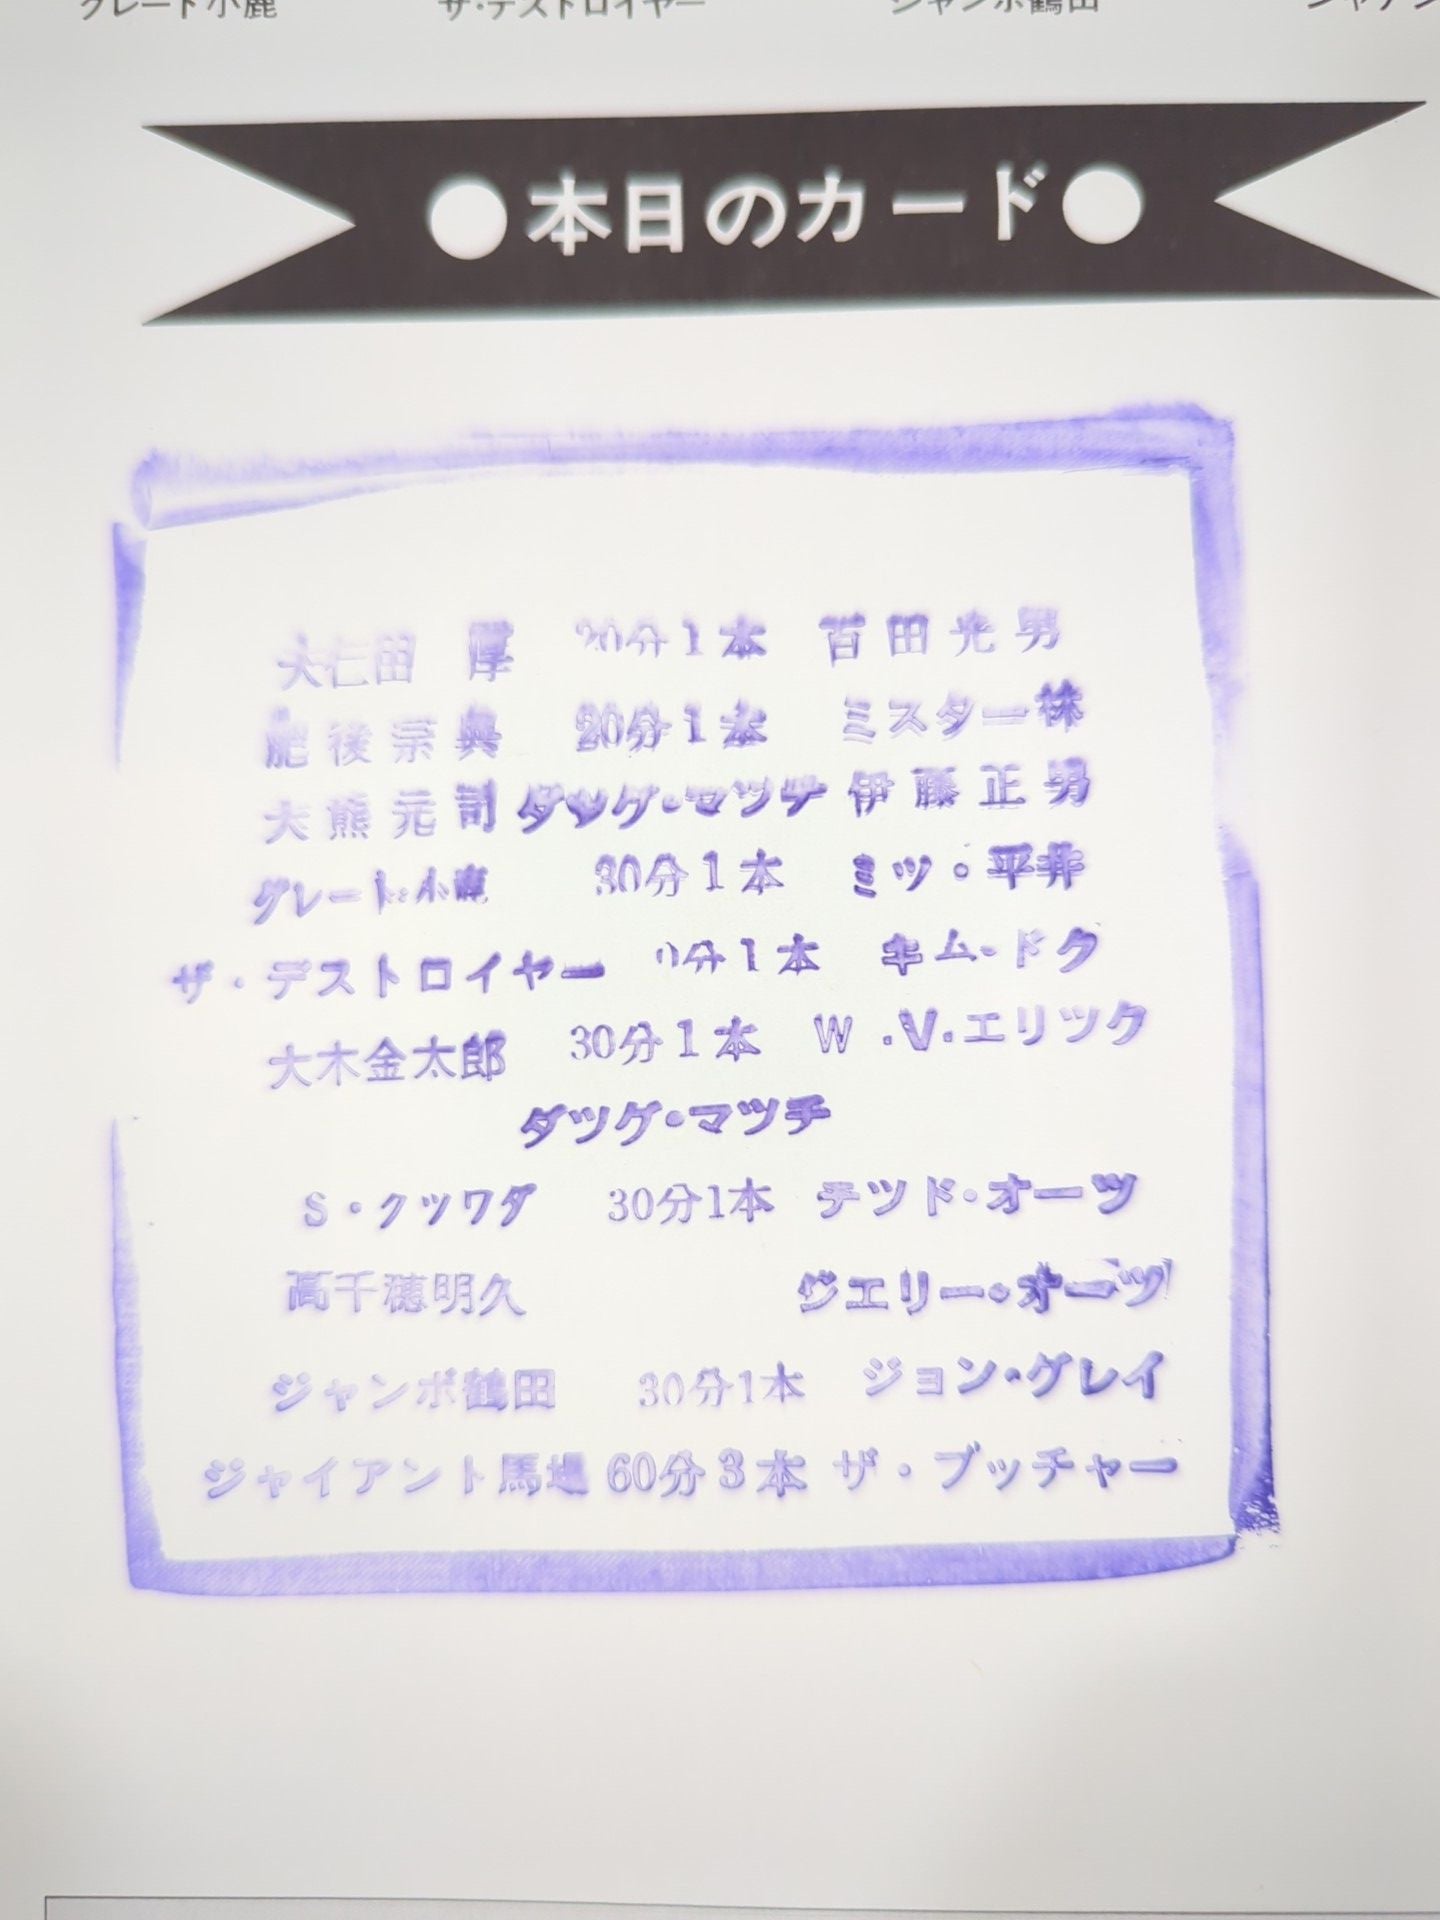 グレート小鹿 ザ・デストロイヤー ジャンボ鶴田
●本日のカード●
大仁田 厚 20分1本 百田光男
肥後宗典 20分1本 ミスター林
大熊元司 タツグ・マツチ 伊藤正男
グレート・小鹿 30分1本 ミツ・平井
ザ・デストロイヤー 0分1本 キム・ドク
大木金太郎 30分1本 W.V.エリツク
タツグ・マツチ
S・クツワダ 30分1本 テツド・オーツ
高千穂明久 ジエリー・オーツ
ジャンボ鶴田 30分1本 ジョン・グレイ
ジャイアント馬場 60分3本 ザ・ブッチャー